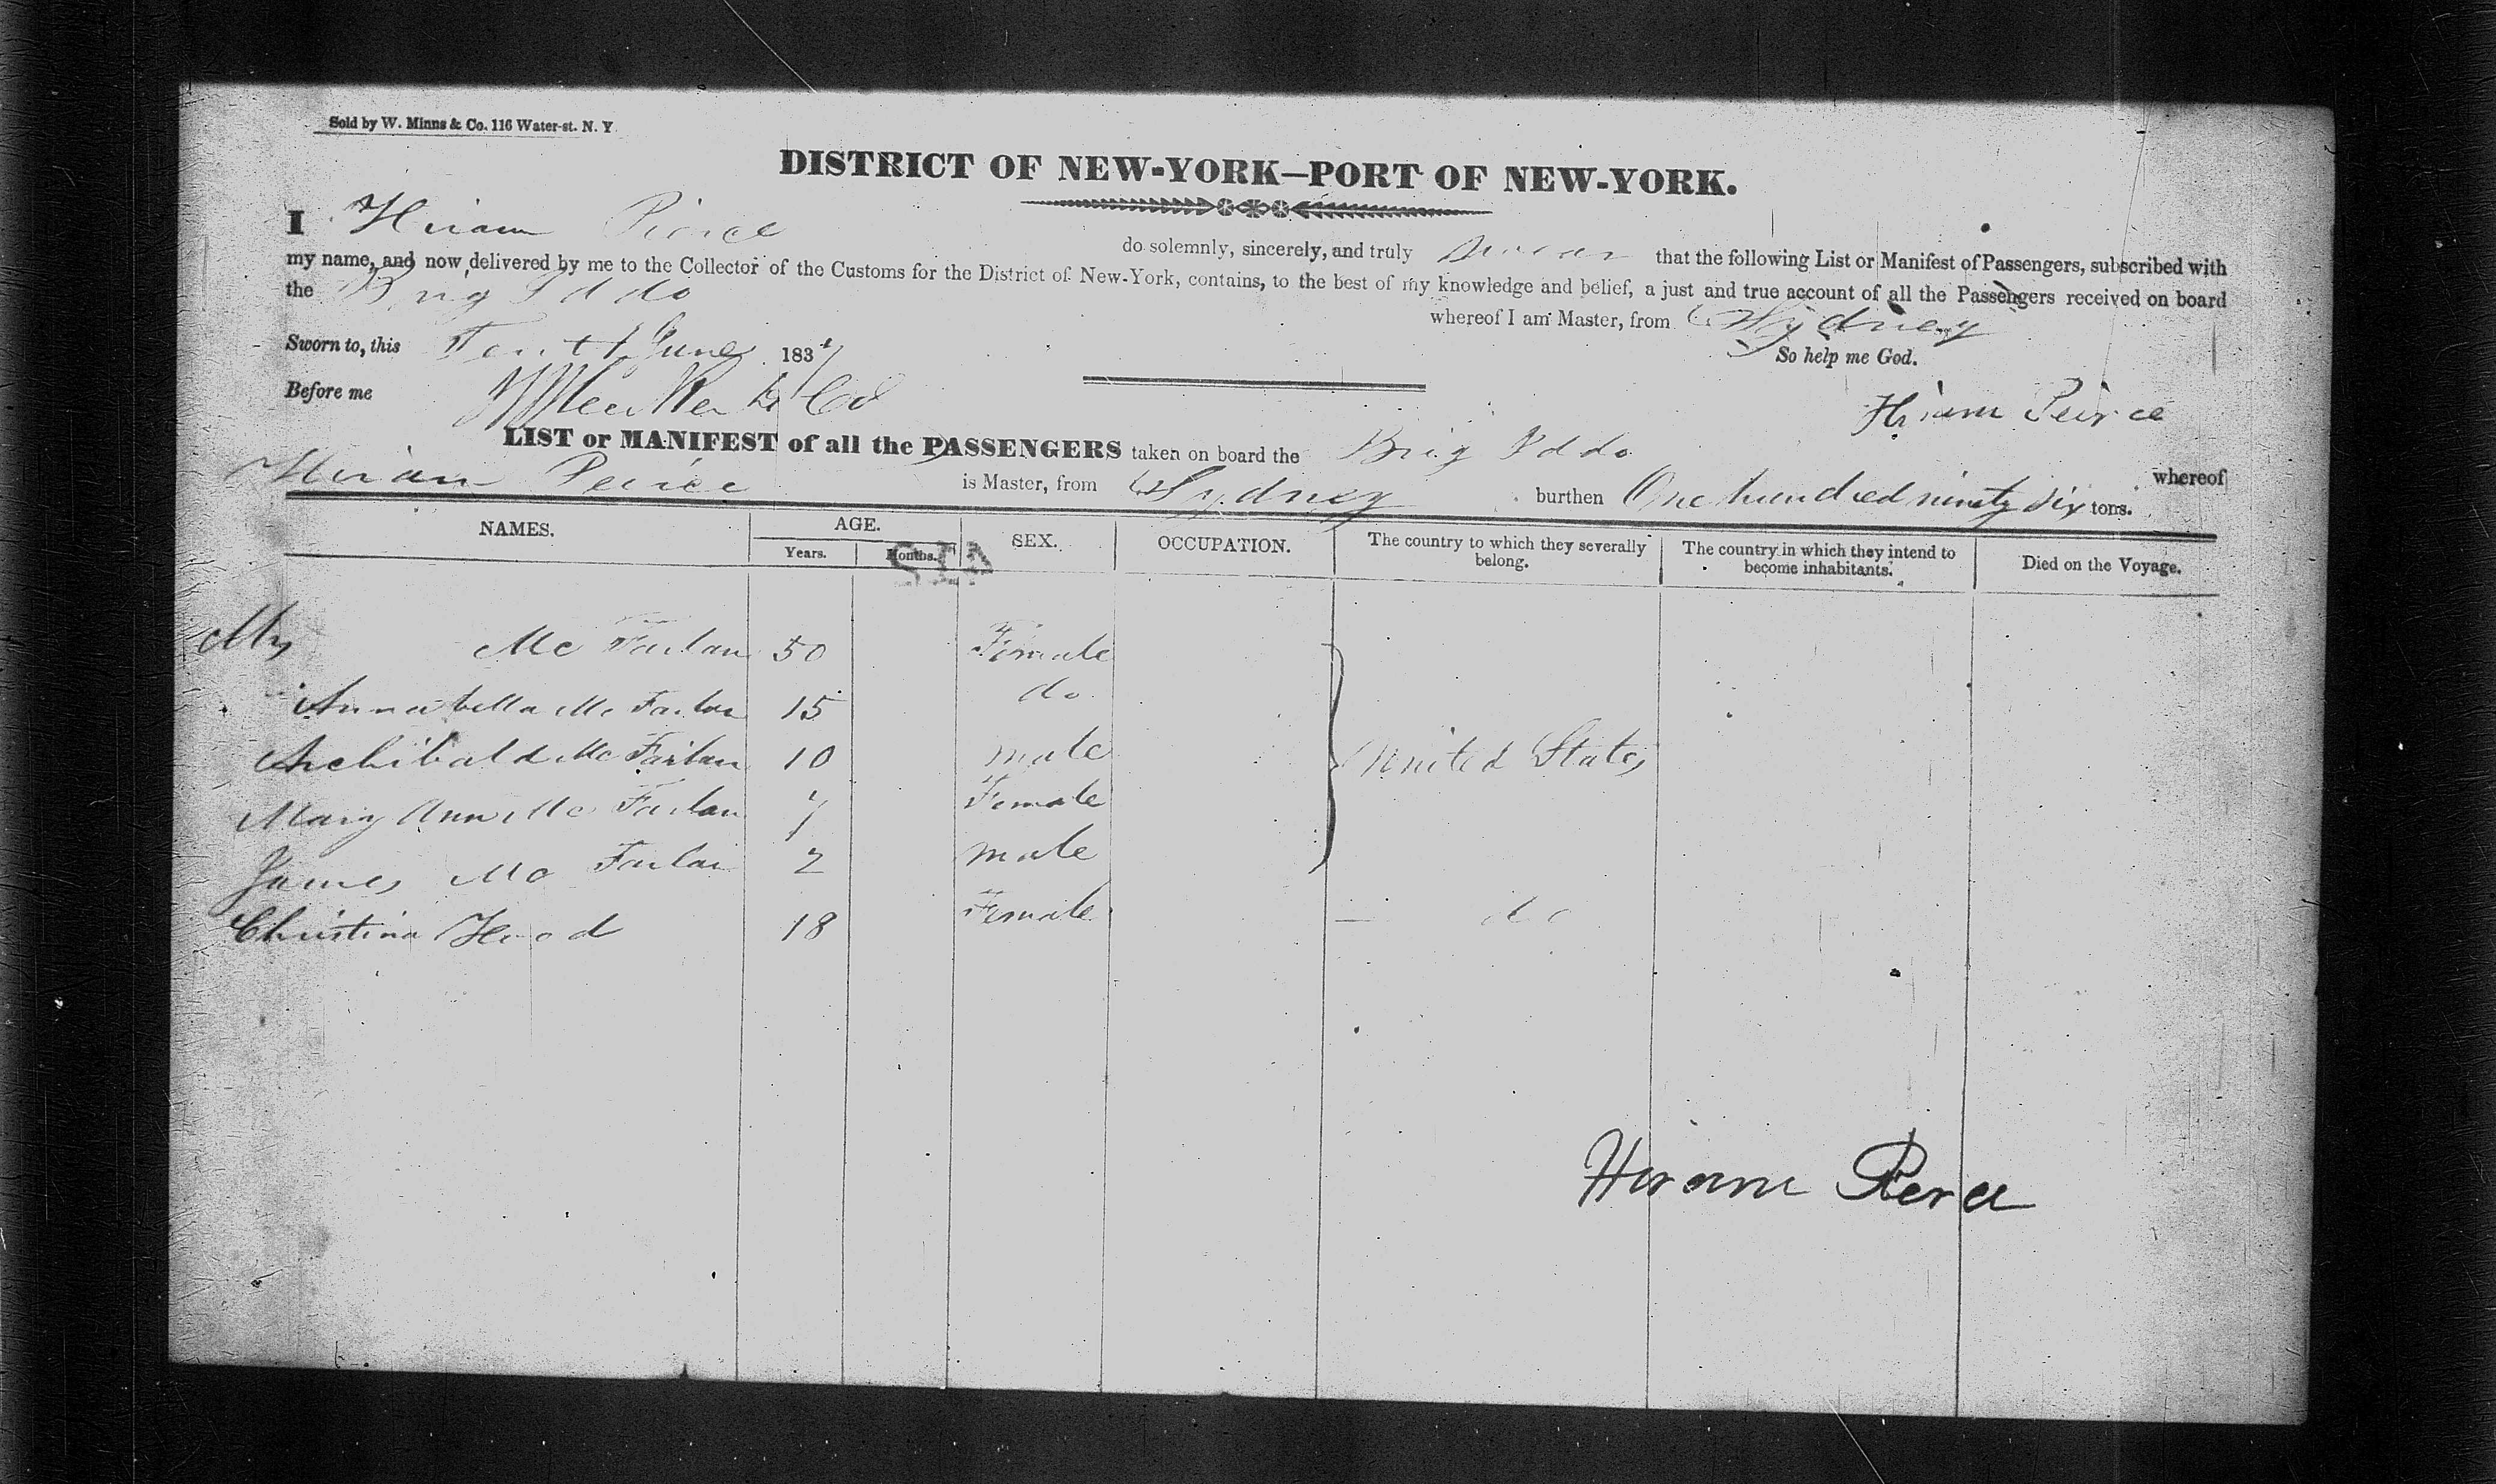 Sold by W. Minns & Co. 116 Water-st. N. Y.
DISTRICT OF NEW-YORK—PORT OF NEW-YORK.
I Hiram Pierce do solemnly, sincerely, and truly swear that the following List or Manifest of Passengers, subscribed with
my name, and now delivered by me to the Collector of the Customs for the District of New-York, contains, to the best of my knowledge and belief, a just and true account of all the Passengers received on board
the Brig Iddo whereof I am Master, from Sydney
Sworn to, this Tenth June 1837 So help me God.
Before me
Hiram Peirce
LIST or MANIFEST of all the PASSENGERS taken on board the Brig Iddo whereof
Hiram Peirce is Master, from Sydney burthen One hundred ninety six tons.
NAMES. AGE. SEX. OCCUPATION. The country to which they severally belong. The country in which they intend to become inhabitants. Died on the Voyage.
Years. Months.
Mrs Mc Farlan 50 Female
Annabella Mc Farlan 15 do
Archibald Mc Farlan 10 male United States
Mary Ann Mc Farlan 7 Female
James Mc Farlan 2 male
Christina Hood 18 Female — do
Hiram Pierce